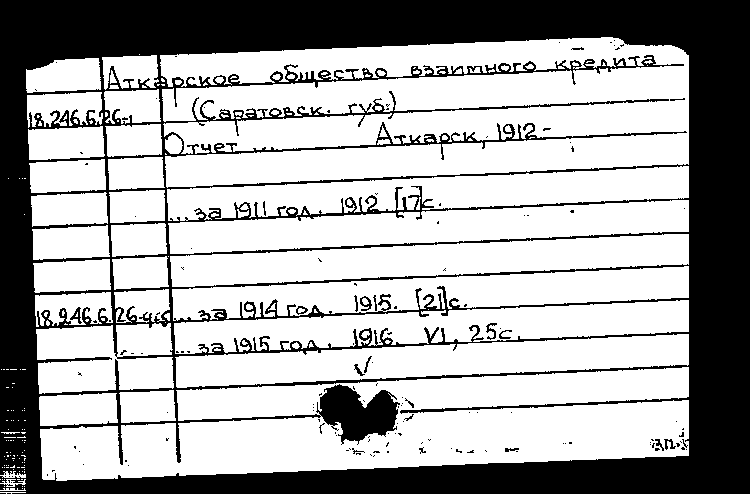 Аткарское общество взаимного кредита
18.246.6.26-1 (Саратовск. губ.)
Отчет ... Аткарск, 1912-
... за 1911 год. 1912 [17]с.
18.246.6.26-4,5 ... за 1914 год. 1915. [21]с.
... за 1915 год. 1916. VI, 25с.